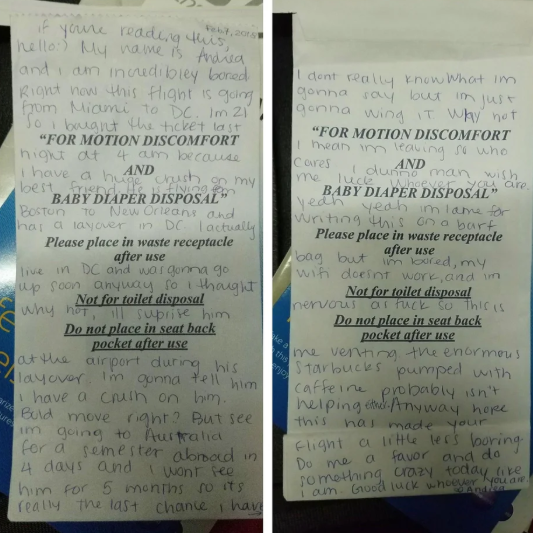 Feb 7, 2015
if you're reading this,
hello:) My name is Andrea
and i am incredibley bored
Right now this flight is going
from Miami to DC. Im 21
so i bought the ticket last
"FOR MOTION DISCOMFORT
night at 4 am because
AND
i have a huge crush on my
best friend. He is flying from
BABY DIAPER DISPOSAL"
Boston to New Orleans and
has a layover in DC. I actually
Please place in waste receptacle
after use
live in DC and was gonna go
up soon anyway so i thought
Not for toilet disposal
why not, ill suprise him
Do not place in seat back
pocket after use
at the airport during his
layover. Im gonna tell him
i have a crush on him.
Bold move right? But see
im going to Australia
for a semester abroad in
4 days and I wont see
him for 5 months so its
really the last chance i have
I dont really know what im
gonna say but im just
gonna wing it why not
"FOR MOTION DISCOMFORT
I mean im leaving so who
cares
AND
I dunno man wish
me luck whoever you are.
BABY DIAPER DISPOSAL"
yeah yeah im lame for
writing this on a barf
Please place in waste receptacle
after use
bag but im bored, my
wifi doesnt work, and im
Not for toilet disposal
nervous as fuck so this is
Do not place in seat back
pocket after use
me venting the enormous
Starbucks pumped with
caffeine probably isn't
helping either. Anyway hope
this has made your
flight a little less boring.
Do me a favor and do
something crazy today like
i am. Good luck whoever you are.
Andrea